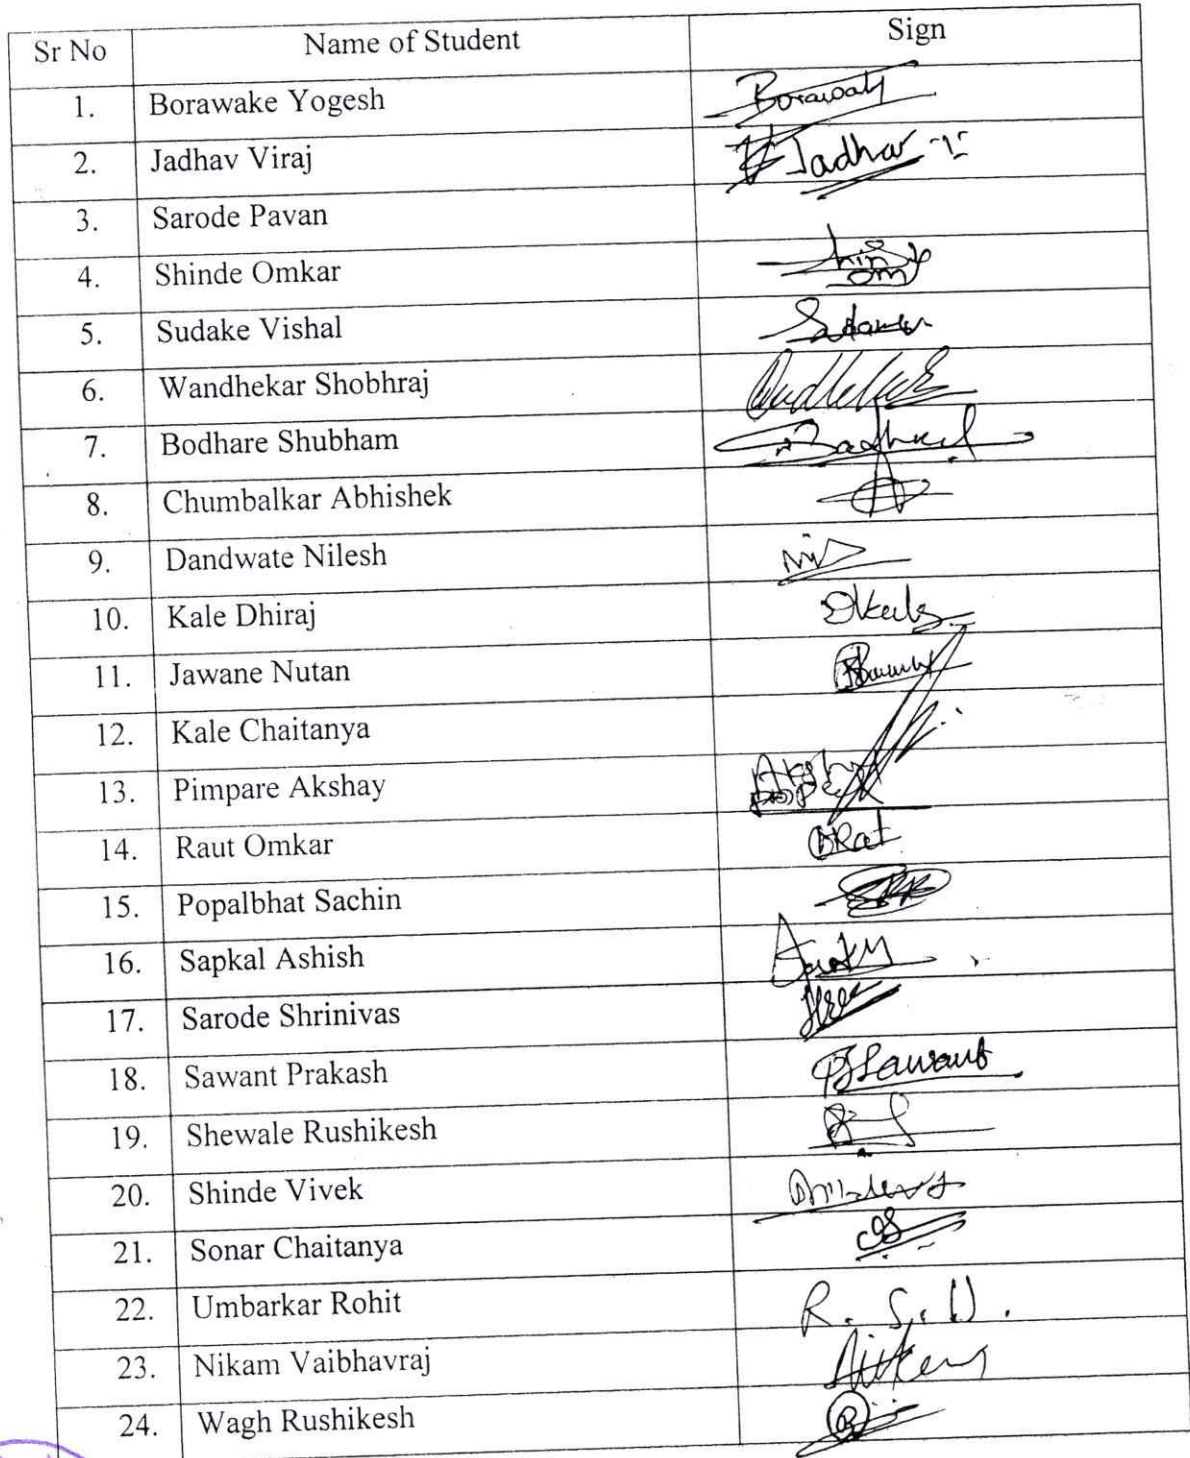 Sr No Name of Student Sign
1. Borawake Yogesh
2. Jadhav Viraj Jadhav
3. Sarode Pavan
4. Shinde Omkar
5. Sudake Vishal
6. Wandhekar Shobhraj
7. Bodhare Shubham
8. Chumbalkar Abhishek
9. Dandwate Nilesh
10. Kale Dhiraj
11. Jawane Nutan
12. Kale Chaitanya
13. Pimpare Akshay
14. Raut Omkar
15. Popalbhat Sachin
16. Sapkal Ashish
17. Sarode Shrinivas
18. Sawant Prakash
19. Shewale Rushikesh
20. Shinde Vivek
21. Sonar Chaitanya
22. Umbarkar Rohit R. S. U.
23. Nikam Vaibhavraj
24. Wagh Rushikesh